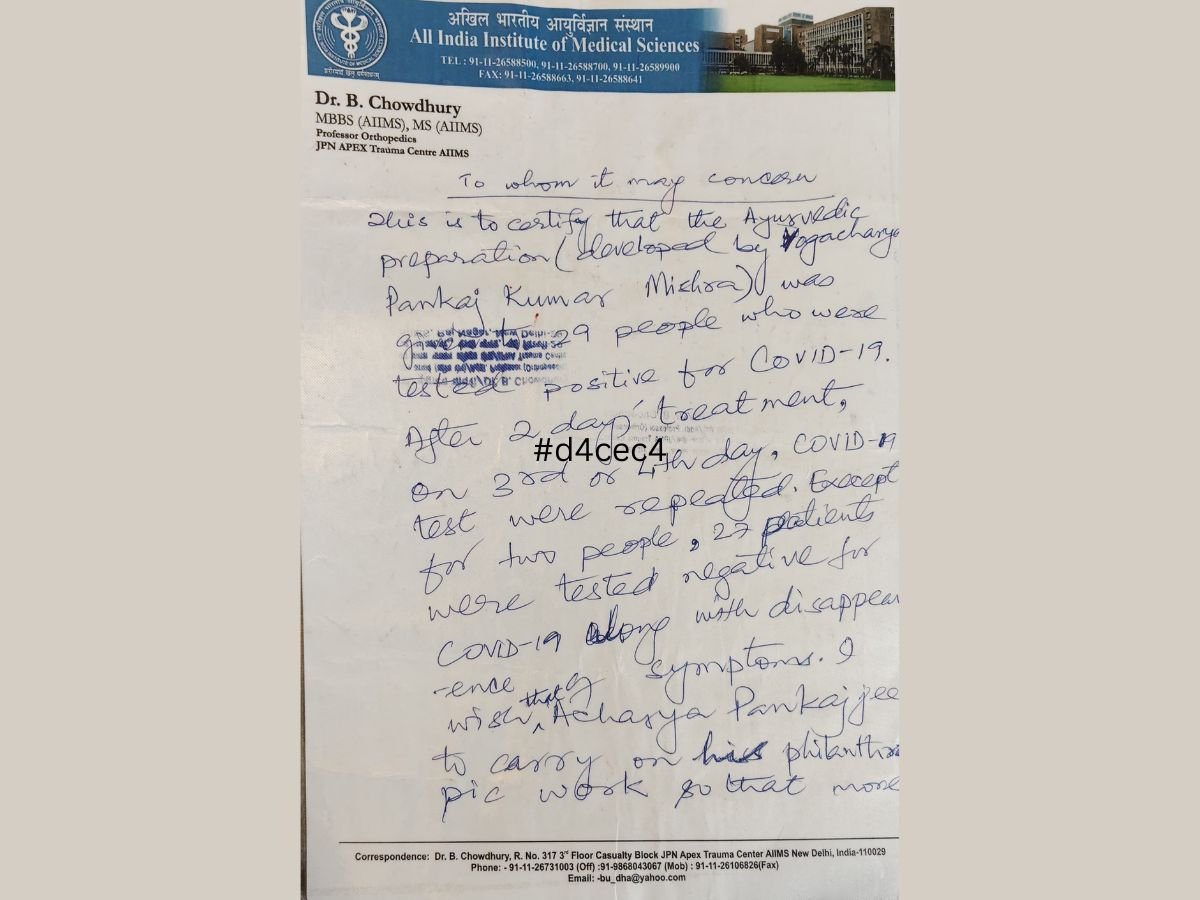 अखिल भारतीय आयुर्विज्ञान संस्थान
All India Institute of Medical Sciences
TEL : 91-11-26588500, 91-11-26588700, 91-11-26589900
FAX: 91-11-26588663, 91-11-26588641
Dr. B. Chowdhury
MBBS (AIIMS), MS (AIIMS)
Professor Orthopedics
JPN APEX Trauma Centre AIIMS
To whom it may concern
This is to certify that the Ayurvedic
preparation (developed by Yogacharya
Pankaj Kumar Mishra) was
given to 29 people who were
tested positive for COVID-19.
After 2 day' treatment,
#d4cec4
on 3rd or 4th day, COVID-19
test were repeated. Except
for two people, 27 patients
were tested negative for
COVID-19 along with disappear
-ence of symptoms. I
wish that Acharya Pankajjee
to carry on his philanthro
pic work so that more
Correspondence: Dr. B. Chowdhury, R. No. 317 3rd Floor Casualty Block JPN Apex Trauma Center AIIMS New Delhi, India-110029
Phone: - 91-11-26731003 (Off) :91-9868043067 (Mob) : 91-11-26106826(Fax)
Email: -bu_dha@yahoo.com